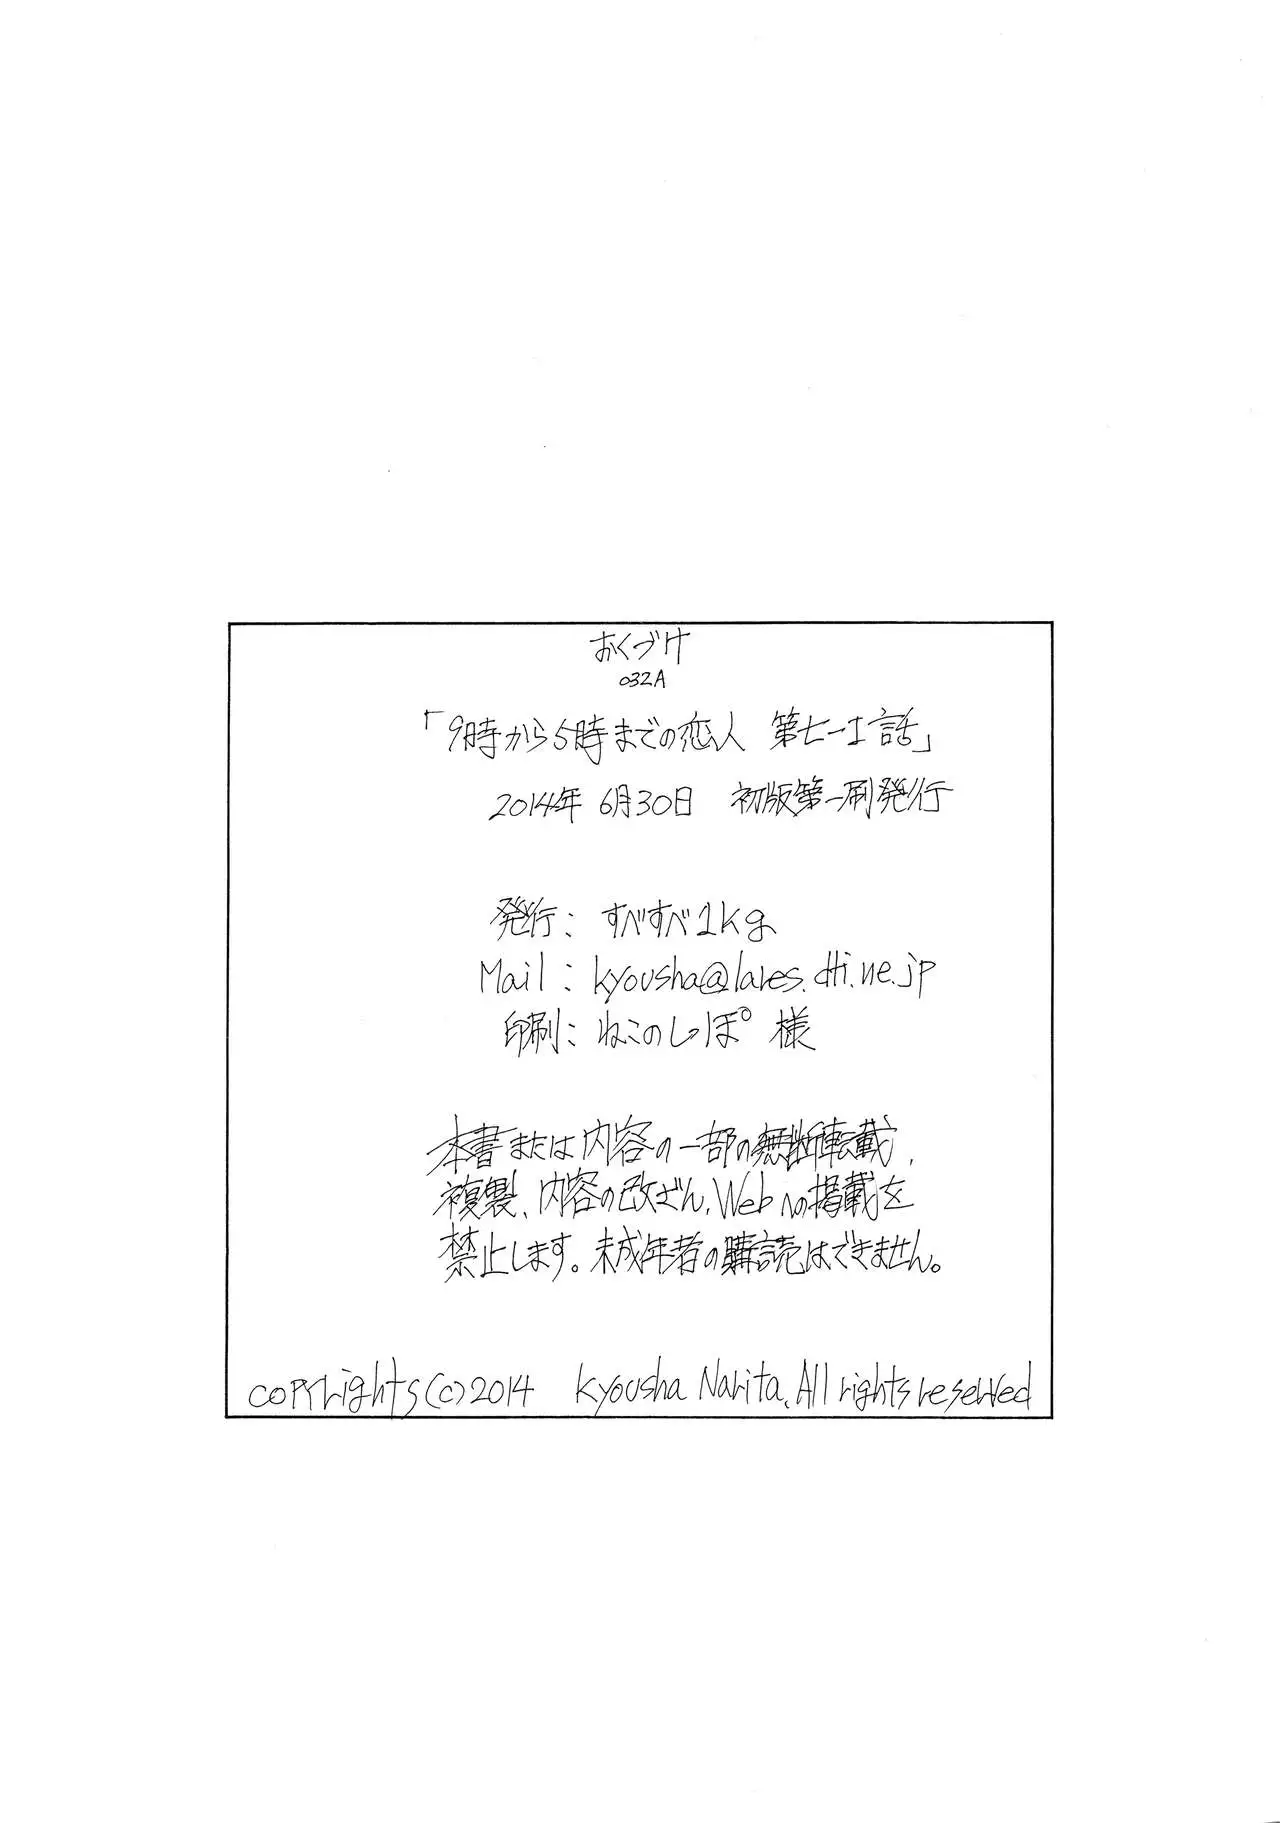 おくづけ
032A
「9時から5時までの恋人 第七-1話」
2014年 6月30日 初版第一刷発行
発行: すべすべ1kg
Mail: kyousha@lares.dti.ne.jp
印刷: ねこのしっぽ 様
本書または内容の一部の無断転載、
複製、内容の改ざん、Webへの掲載を
禁止します。未成年者の購読はできません。
copyrights(c)2014 Kyousha Narita, All rights reserved